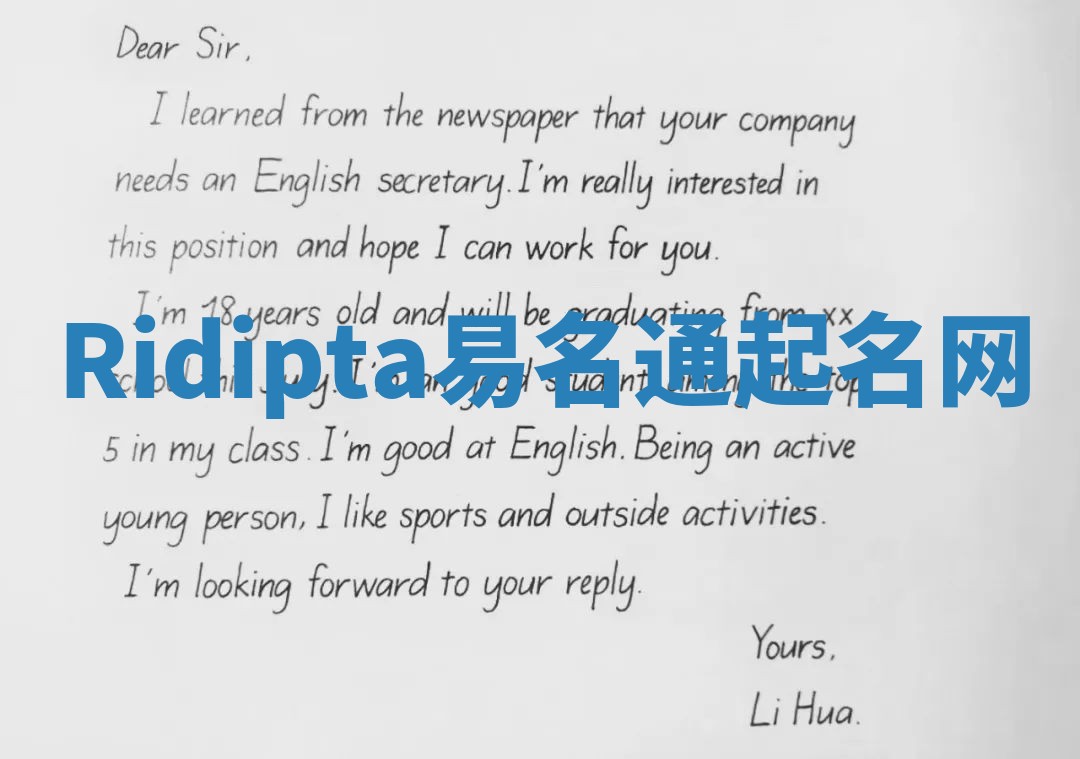 Dear Sir,
I learned from the newspaper that your company
needs an English secretary. I'm really interested in
this position and hope I can work for you.
I'm 18 years old and will be graduating from xx
Ridipta易名通起名网
school this July. I'm a good student among the top
5 in my class. I'm good at English. Being an active
young person, I like sports and outside activities.
I'm looking forward to your reply.
Yours,
Li Hua.